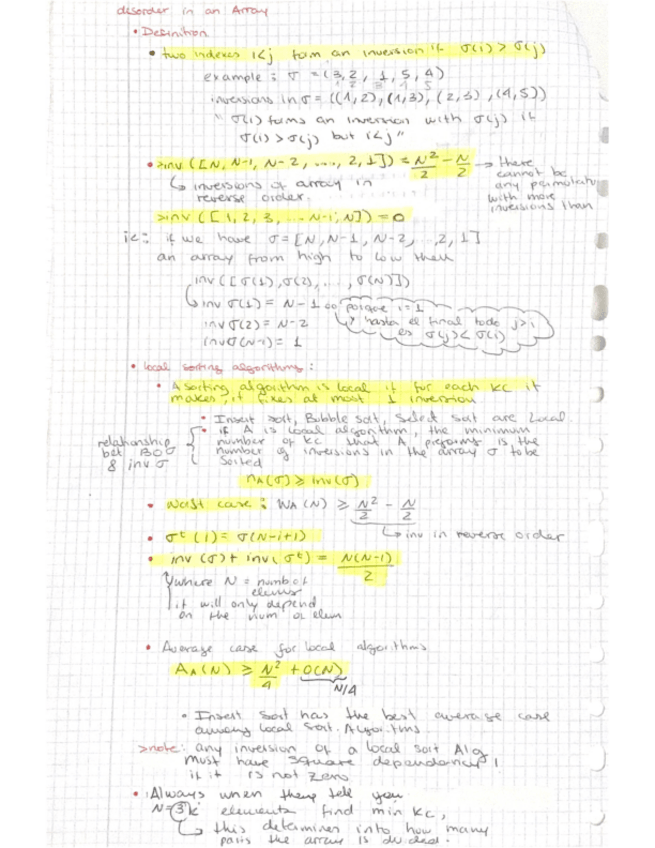 disorder in an Array
• Definition
• two indexes i<j form an inversion if σ(i) > σ(j)
example : σ = (3, 2, 1, 5, 4)
1 2 3 4 5
inversions in σ = ((1,2), (1,3), (2,3), (4,5))
" σ(i) forms an inversion with σ(j) if
σ(i) > σ(j) but i<j "
• >inv ([N, N-1, N-2, ..., 2, 1]) = N²/2 - N/2 → there
cannot be
any permutatu
with more
inversions than
↳ inversions of array in
reverse order.
>inv ([1, 2, 3, ... N-1, N]) = 0
if we have σ = [N, N-1, N-2, ..., 2, 1]
an array from high to low then
inv ([σ(1), σ(2), ..., σ(N)])
↳ inv σ(1) = N-1 porque i=1
inv σ(2) = N-2 y hasta el final todo j>i
inv σ(N-1) = 1 es σ(j) < σ(i)
• local sorting algorithms :
• A sorting algorithm is local if for each kc it
makes, it fixes at most 1 inversion
• Insert sort, Bubble sort, Select sort are Local.
• if A is local algorithm, the minimum
number of kc that A preforms is the
number of inversions in the array σ to be
sorted
relationship
bet
& inv σ
nA(σ) ≥ inv(σ)
• Worst case : WA(N) ≥ N²/2 - N/2
↳ inv in reverse order
• σᵗ(i) = σ(N-i+1)
• inv(σ) + inv(σᵗ) = N(N-1)/2
where N = numb of
elems
it will only depend
on the num of elem
• Average case for local algorithms
AA(N) ≥ N²/4 + O(N)
N/4
• Insert sort has the best average case
among local sort. Algorithms.
>note: any inversion of a local sort Alg
must have square dependancy!
if it is not zero
• Always when they tell you
N = 3k elements find min kc,
↳ this determines into how many
parts the array is divided.